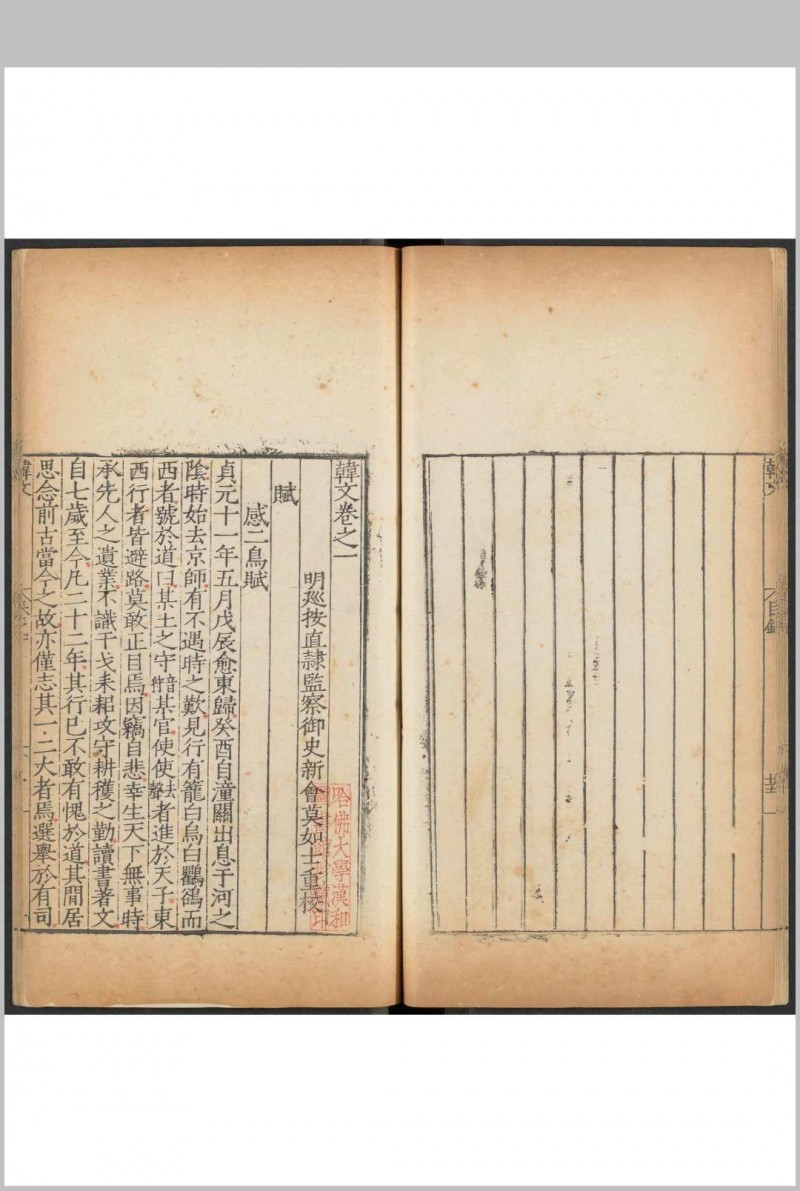 韓文
目錄
韓文卷之一
明廵按直隷監察御史新會莫如士重校
哈佛大學漢和
圖書館珍藏印
賦
感二鳥賦
貞元十一年五月戊辰愈東歸癸酉自潼關出息于河之
隂時始去京師有不遇時之歎見行有籠白烏白鸜鵒而
西者號於道曰某土之守音狩某官使使去聲者進於天子東
西行者皆避路莫敢正目焉因竊自悲幸生天下無事時
承先人之遺業不識干戈耒耜攻守耕穫之勤讀書著文
自七歲至今凡二十二年其行已不敢有愧於道其閒居
思念前古當今之故亦僅志其一二大者焉選舉於有司
韓文